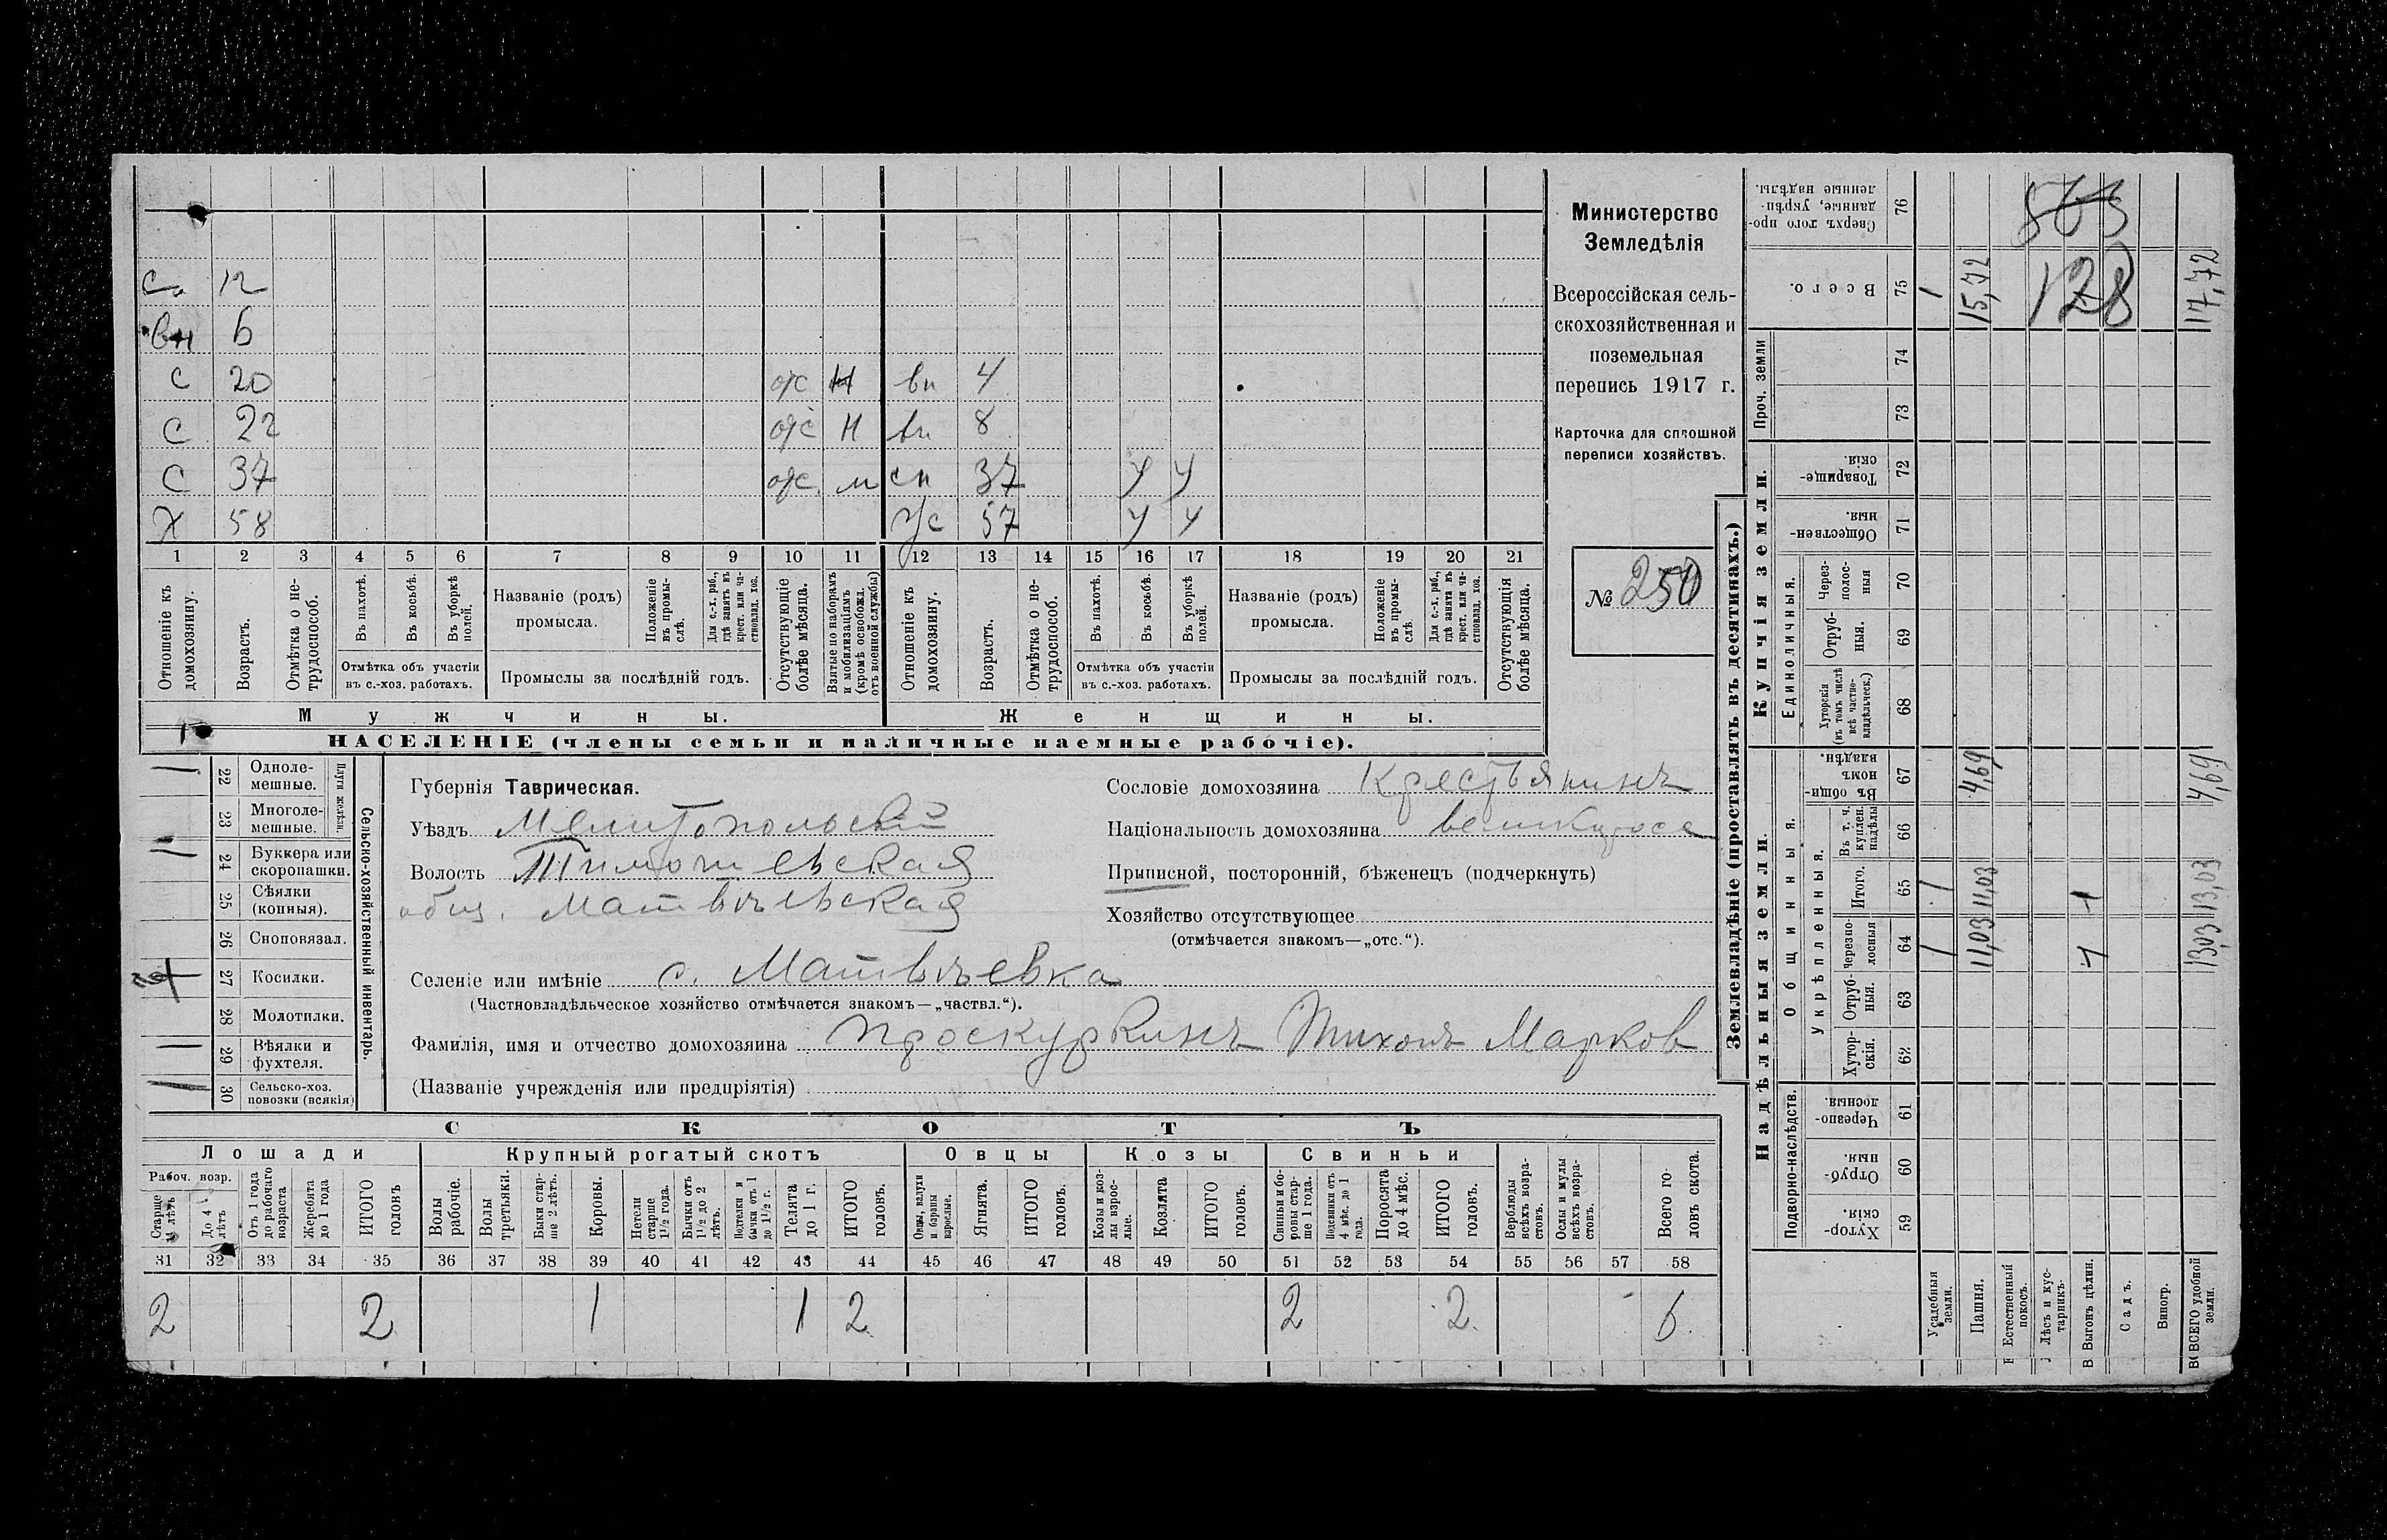 Министерство
Земледѣлія
Всероссійская сель-
скохозяйственная и
поземельная
перепись 1917 г.
Карточка для сплошной
переписи хозяйствъ.
№ 250
С. 12
вн 6
С 20 отс Н вн 4
С 22 отс Н вн 8
С 37 отс. м сн 37 У У
Х 58 ж/с 57 У У
1 2 3 4 5 6 7 8 9 10 11 12 13 14 15 16 17 18 19 20 21
Отношеніе къ домохозяину.
Возрастъ.
Отмѣтка о не-трудоспособ.
Въ пахотѣ.
Въ косьбѣ.
Въ уборкѣ полей.
Отмѣтка объ участіи
въ с.-хоз. работахъ.
Названіе (родъ)
промысла.
Положеніе въ промы-слѣ.
Для с.-х. раб., гдѣ занятъ въ крест. или ча-стновлад. хоз.
Промыслы за послѣдній годъ.
Отсутствующіе болѣе мѣсяца.
Взятые по наборамъ и мобилизаціямъ (кромѣ освобожд. отъ военной службы)
Отношеніе къ домохозяину.
Возрастъ.
Отмѣтка о не-трудоспособ.
Въ пахотѣ.
Въ косьбѣ.
Въ уборкѣ полей.
Отмѣтка объ участіи
въ с.-хоз. работахъ.
Названіе (родъ)
промысла.
Положеніе въ промы-слѣ.
Для с.-х. раб., гдѣ занята въ крест. или ча-стновлад. хоз.
Промыслы за послѣдній годъ.
Отсутствующія болѣе мѣсяца.
Мужчины.
Женщины.
НАСЕЛЕНІЕ (члены семьи и наличные наемные рабочіе).
22 Одноле-мешные.
23 Многоле-мешные.
Плуги желѣзн.
24 Буккера или скоропашки.
25 Сѣялки (конныя).
26 Сноповязал.
27 Косилки.
28 Молотилки.
29 Вѣялки и фухтеля.
30 Сельско-хоз. повозки (всякія)
Сельско-хозяйственный инвентарь.
Губернія Таврическая.
Уѣздъ Мелитопольскій
Волость Тимошевская
общ. Матвѣевская
Селеніе или имѣніе с. Матвѣевка
(Частновладѣльческое хозяйство отмѣчается знакомъ—„частвл.“).
Фамилія, имя и отчество домохозяина Проскуркинъ Тихонъ Марков
(Названіе учрежденія или предпріятія)
Сословіе домохозяина Крестьянинъ
Національность домохозяина великоросс
Приписной, посторонній, бѣженецъ (подчеркнуть)
Хозяйство отсутствующее
(отмѣчается знакомъ—„отс.“).
СКОТЪ
Лошади
Крупный рогатый скотъ
Овцы
Козы
Свиньи
Рабоч. возр.
Старше 4 лѣтъ
До 4 лѣтъ
Отъ 1 года до рабочаго возраста
Жеребята до 1 года
ИТОГО головъ
Волы рабочіе.
Волы третьяки.
Быки стар-ше 2 лѣтъ.
Коровы.
Нетели старше 1½ года.
Бычки отъ 1½ до 2 лѣтъ.
Подтелки и бычки отъ 1 до 1½ г.
Телята до 1 г.
ИТОГО головъ.
Овцы, валухи и бараны взрослые.
Ягнята.
ИТОГО головъ.
Козы и коз-лы взрос-лые.
Козлята
ИТОГО головъ.
Свиньи и бо-ровы стар-ше 1 года.
Подсвинки отъ 4 мѣс. до 1 года.
Поросята до 4 мѣс.
ИТОГО головъ.
Верблюды всѣхъ возра-стовъ.
Ослы и мулы всѣхъ возра-стовъ.
Всего го-ловъ скота.
31 32 33 34 35 36 37 38 39 40 41 42 43 44 45 46 47 48 49 50 51 52 53 54 55 56 57 58
2 2 1 1 2 2 2. 6.
Землевладѣніе (проставлять въ десятинахъ.)
Надѣльныя земли.
Купчія земли.
Проч. земли
Подворно-наслѣдств.
Общинныя.
Укрѣпленныя.
Единоличныя.
59 Хутор-скія.
60 Отруб-ныя.
61 Черезпо-лосныя.
62 Хутор-скія.
63 Отруб-ныя.
64 Черезпо-лосныя
65 Итого.
66 Въ т. ч. куплен. надѣлы
67 Въ общи-номъ владѣн.
68 Хуторскія (въ томъ числѣ всѣ частно-владѣльческ.)
69 Отруб-ныя.
70 Через-полос-ныя
71 Обществен-ныя.
72 Товарище-скія.
73
74
75 Всего.
76 Сверхъ того про-данные, укрѣп-ленные надѣлы.
Усадебныя земли. 1 1 1
Пашня. 11,03 11,03 4,69 15,72
Естественный покосъ.
Лѣсъ и кус-тарникъ.
Выгонъ цѣлин. 1 1
Садъ.
Виногр.
ВСЕГО удобной земли. 13,03 13,03 4,69 17,72
128